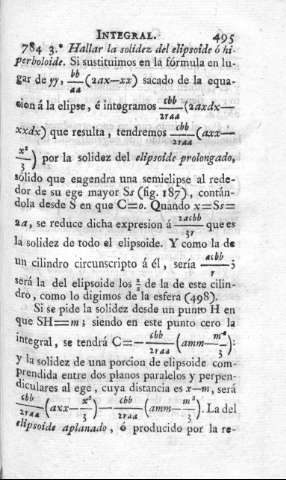 INTEGRAL. 495
784 3.° Hallar la solidez del elipsoide ó hi-
perboloide. Si sustituimos en la fórmula en lu-
gar de yy, bb/aa (2ax—xx) sacado de la equa-
cion á la elipse, é integramos cbb/2raa (2axdx—
xxdx) que resulta, tendremos cbb/2raa (axx—
x³/3) por la solidez del elipsoide prolongado,
sólido que engendra una semielipse al rede-
dor de su ege mayor Ss (fig. 187), contán-
dola desde S en que C=0. Quando x=Ss=
2a, se reduce dicha expresion á 2acbb/3r que es
la solidez de todo el elipsoide. Y como la de
un cilindro circunscripto á él, sería acbb/r;
será la del elipsoide los 2/3 de la de este cilin-
dro, como lo digimos de la esfera (498).
Si se pide la solidez desde un punto H en
que SH=m; siendo en este punto cero la
integral, se tendrá C=— cbb/2raa (amm—m³/3):
y la solidez de una porcion de elipsoide com-
prendida entre dos planos paralelos y perpen-
diculares al ege, cuya distancia es x—m, será
cbb/2raa (axx—x³/3)—cbb/2raa (amm—m³/3). La del
elipsoide aplanado, ó producido por la re-